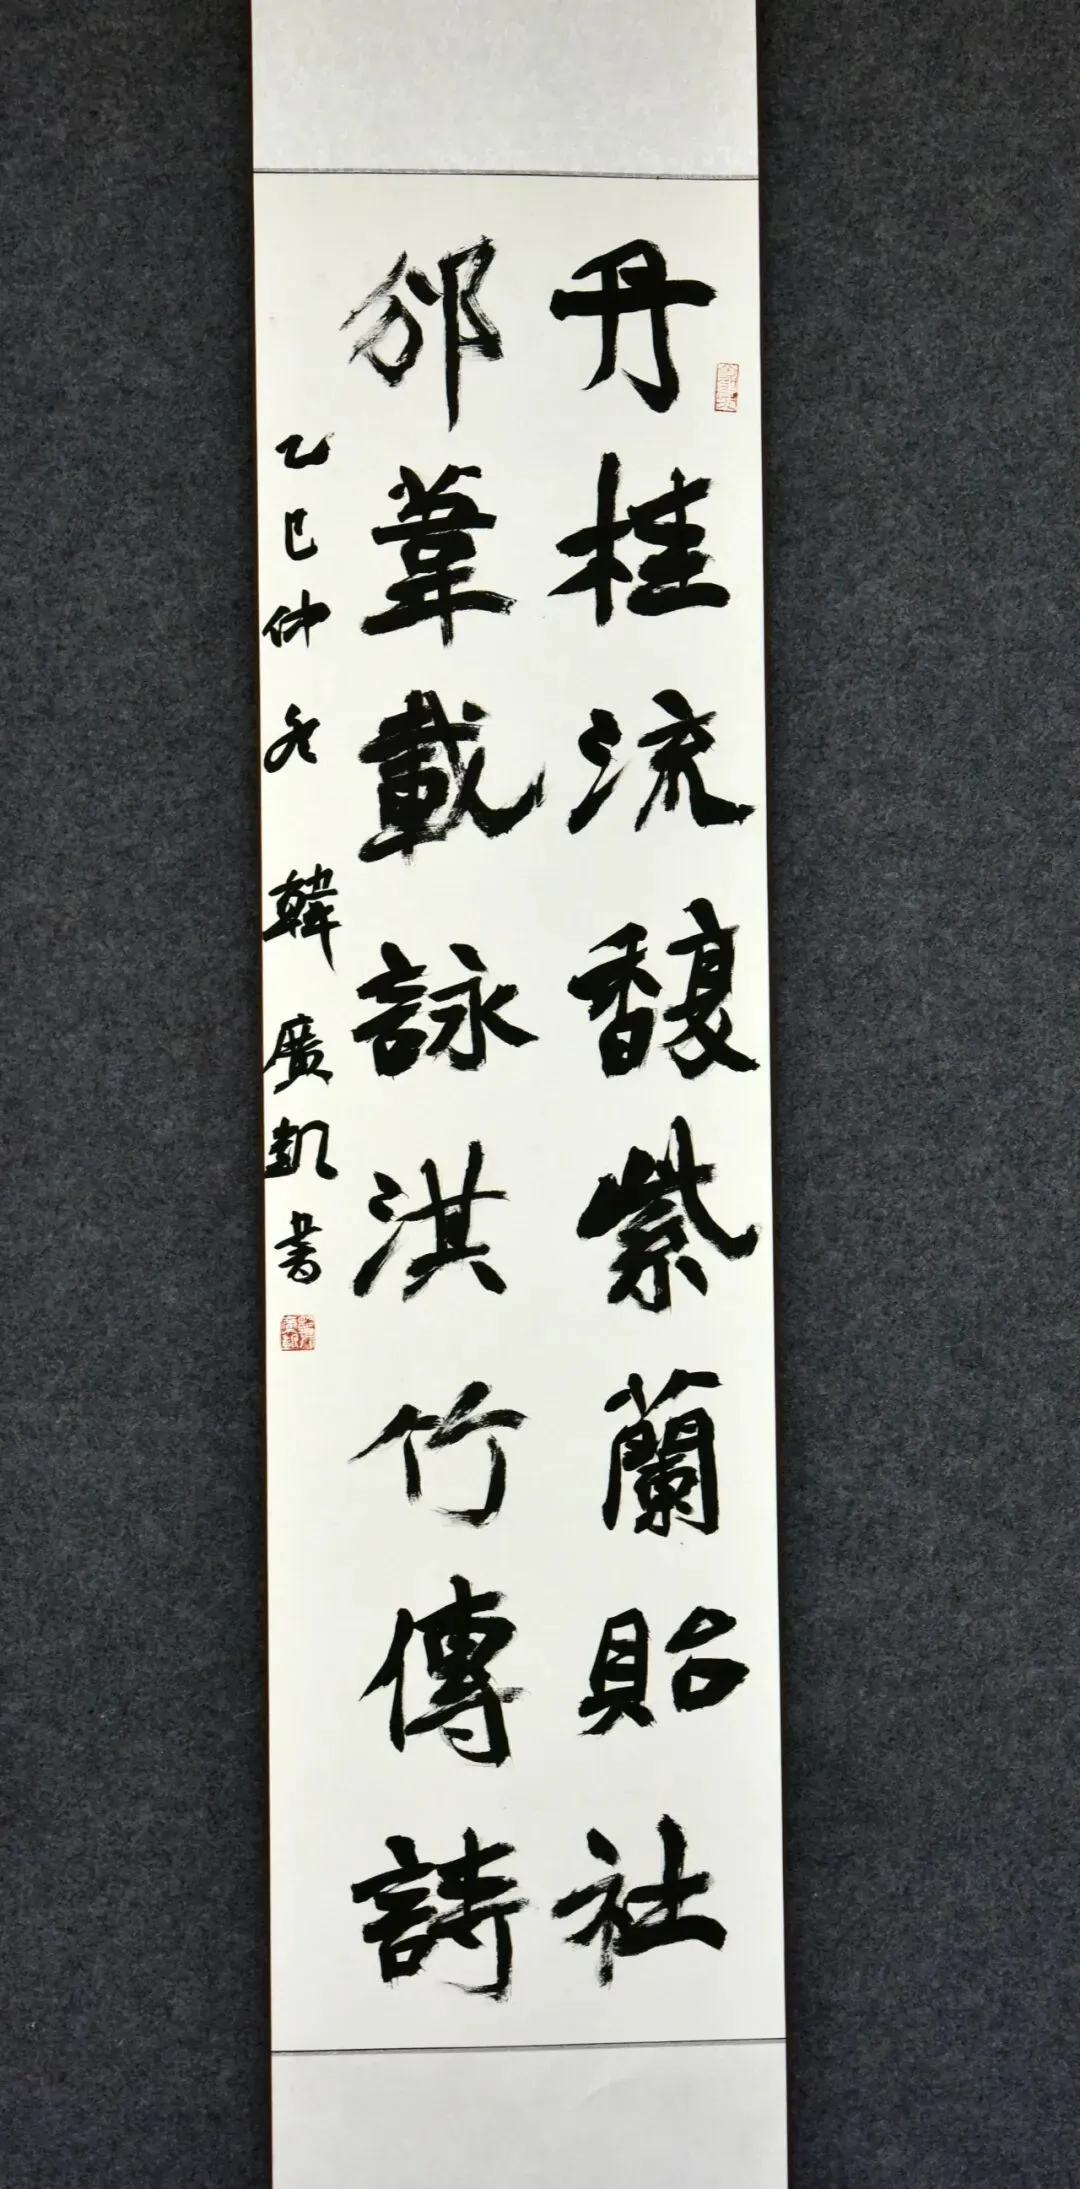 丹桂流馥紫蘭貽祉
邠葦載詠淇竹傳詩
乙巳仲冬 韓廣凱書